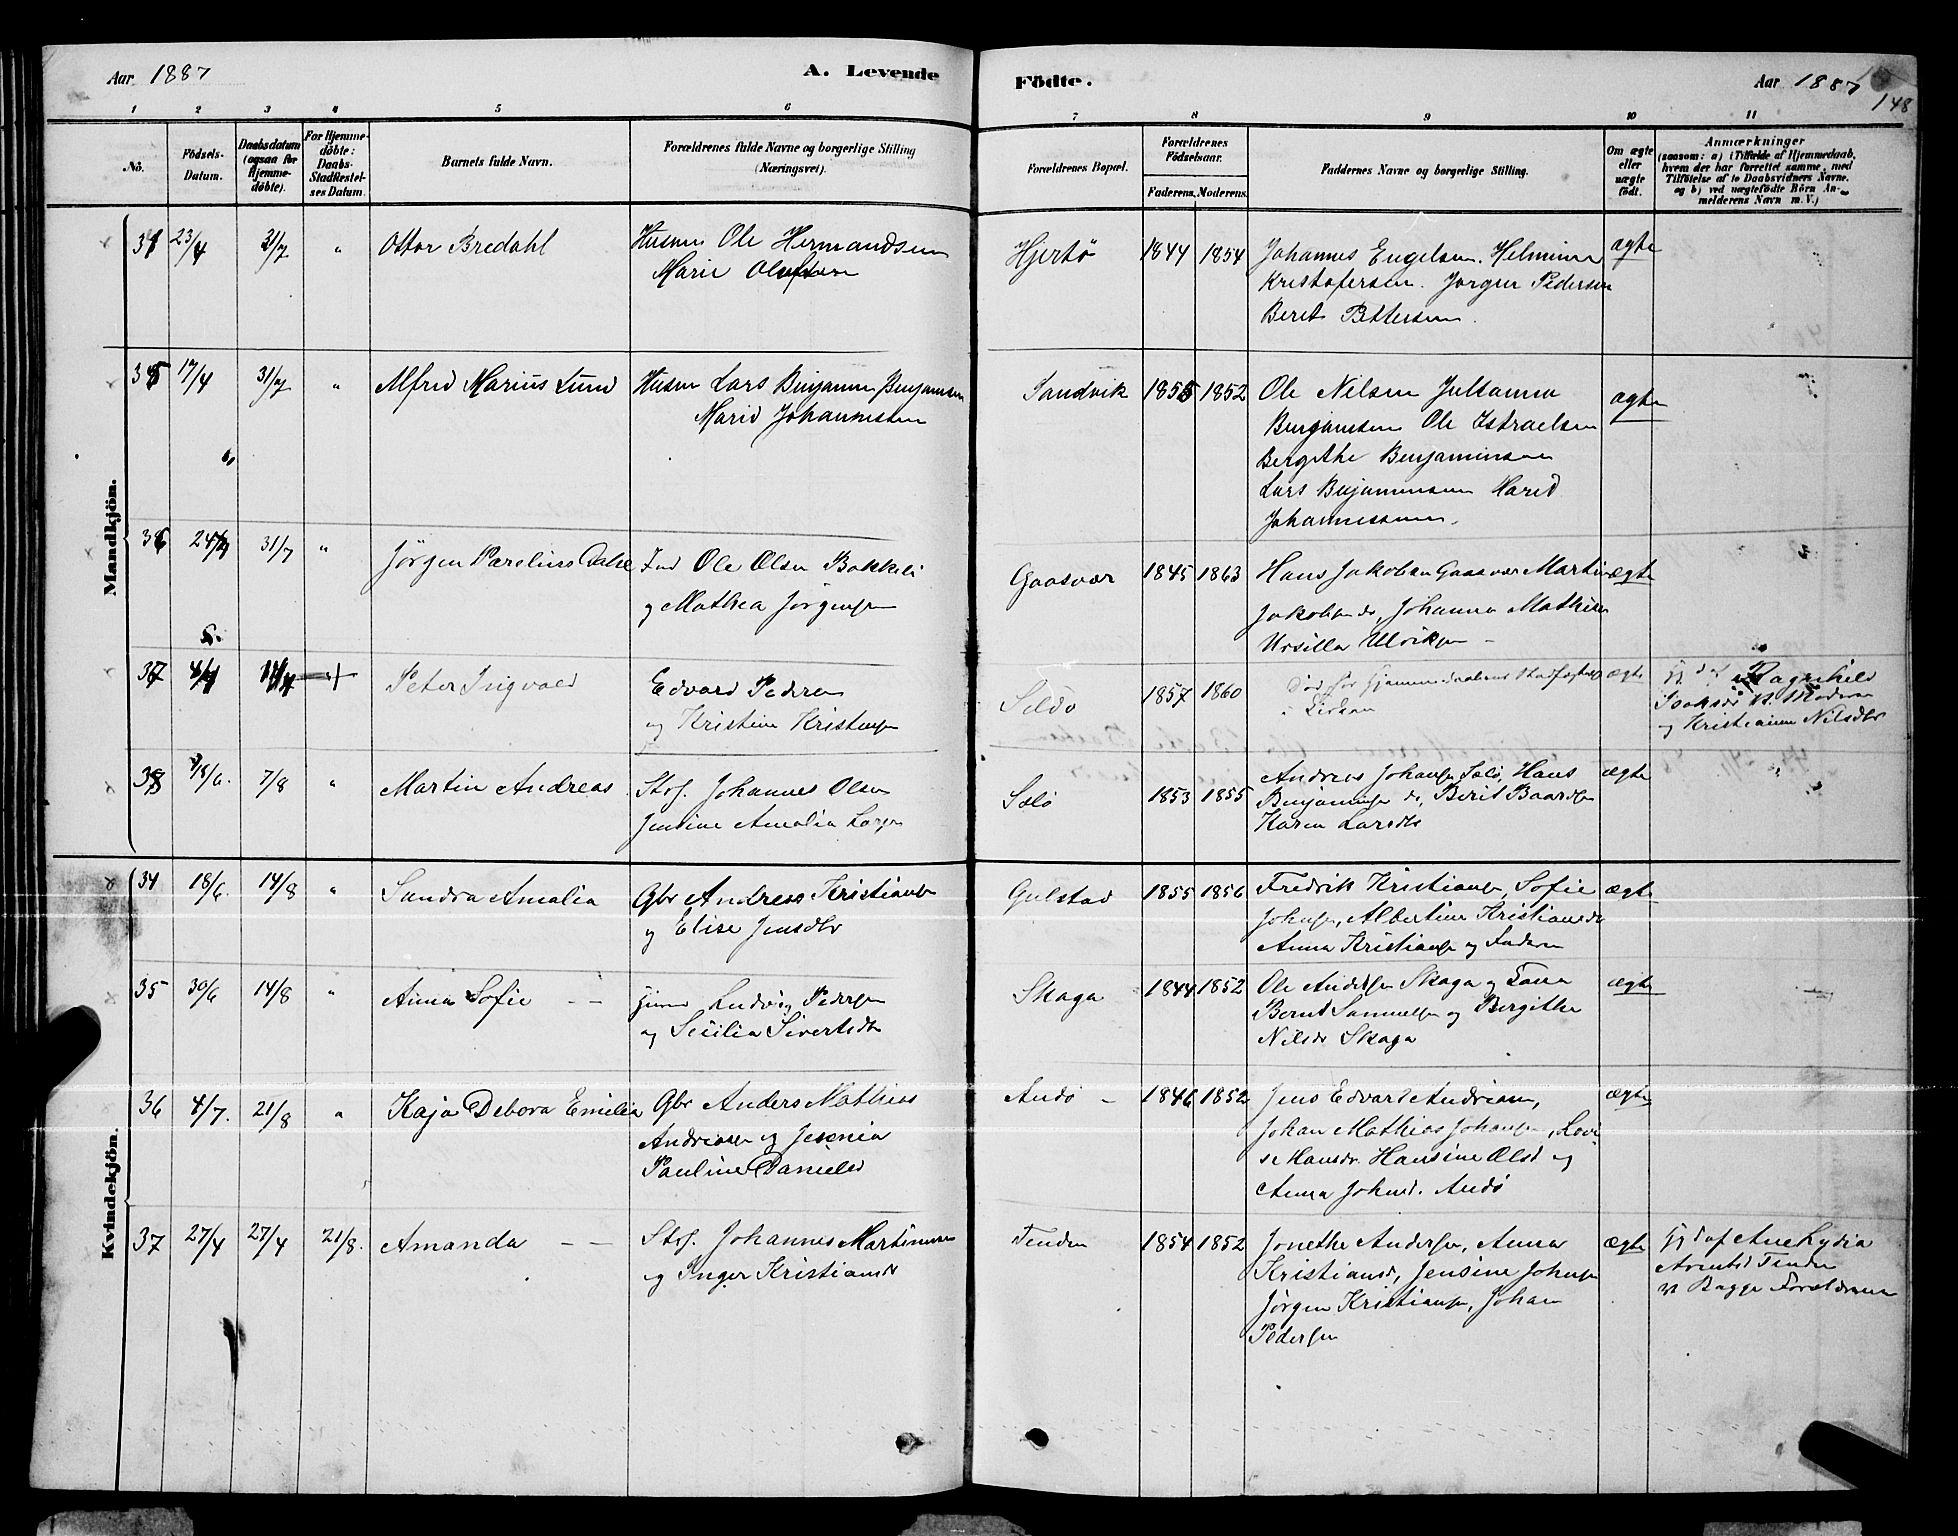 Aar 1887
A. Levende
Födte.
Aar 1887
148
1 2 3 4 5 6 7 8 9 10 11
No.
Födsels-
Datum.
Daabsdatum
(ogsaa for
Hjemme-
döbte).
For Hjemme-
döbte:
Daabs-
Stadfæstel-
ses Datum.
Barnets fulde Navn.
Forældrenes fulde Navne og borgerlige Stilling
(Næringsvei).
Forældrenes Bopæl.
Forældrenes
Födselsaar.
Faderens. Moderens.
Faddernes Navne og borgerlige Stilling.
Om ægte
eller
uægte
födt.
Anmærkninger
(saasom: a) i Tilfælde af Hjemmedaab,
hvem der har forrettet samme, med
Tilföielse af to Daabsvidners Navne.
og b) ved uægtefödte Börn An-
melderens Navn m. V.)
Mandkjön.
34 23/4 31/7 " Ottar Bredahl
Husm Ole Hermandsen
Marie Olsdatter
Hjertö 1844 1854
Johannes Engelsen. Helmine
Kristofersen. Jörgen Pedersen
Berit Pettersen.
ægte
35 17/4 31/7 " Alfred Marius Lund
Husm Lars Benjamin Benjamsen
Marid Johannesen
Sandvik 1855 1852
Ole Nilsen Julianna
Benjamsen Ole Istraelsen
Bergithe Benjaminsen
Lars Benjaminsen Marid
Johannessen.
ægte
36 24/4 31/7 " Jörgen Parelius Dahl
Ind Ole Olsen Bakkeli
og Mathea Jörgensen
Gaasvær 1845 1863
Hans Jakobsen Gaasvær Martin
Jakobsen do, Johanna Mathisen
Ursilla Ulriksen -
ægte
37 Peter Ingvald
Edvard Pedersen
og Kristine Kristensen
Sildö 1857 1860
Död för Hjemmedaabens Stadfæstelse
i Kirken
ægte
Hjd af Ragnhild
Isaksdr
og Kristianne Nilsdtr
38 18/6. 7/8 " Martin Andreas
Strf. Johannes Olsen
Jensine Amalia Larsen
Solö 1853 1855
Andreas Johansen Solö, Hans
Benjaminsen do, Berit Baardsen
Karen Larsdtr
ægte
Kvindekjön.
34 18/6. 14/8 " Sandra Amalia
Gbr Andreas Kristiansen
og Elise Jensdtr
Gulstad 1855 1856
Fredrik Kristiansen, Sofie
Johnsen, Albertine Kristiansdr
Anna Kristiansen og Faderen
ægte
35 30/6 14/8 " Anna Sofie - -
Ludvig Pedersen
og Sesilia Sivertsdtr
Skaga 1844 1852
Ole Andersen Skaga og Kona
Bernt Samuelsen og Bergithe
Nilsdr Skaga
ægte
36 4/7. 21/8 " Kaja Debora Emilia
Gbr Anders Mathias
Andreasen og Jesenia
Pauline Danielsd
Andö - 1846 1852
Jens Edvard Andreasen,
Johan Mathias Johansen, Lovi
se Hansdr. Hansine Olsd og
Anna Johnsd. Andö
ægte
37 27/4 27/4 21/8. Amanda - -
Strf. Johannes Martinussen
og Inger Kristiansdr
Tenden 1854 1852
Jonetha Andersen, Anna
Kristiansdr, Jensine Johnsen
Jörgen Kristiansen, Johan
Pedersen
ægte
Hjd af Ane Lydia
Arentsd Tenden
V. Begge Forældrene